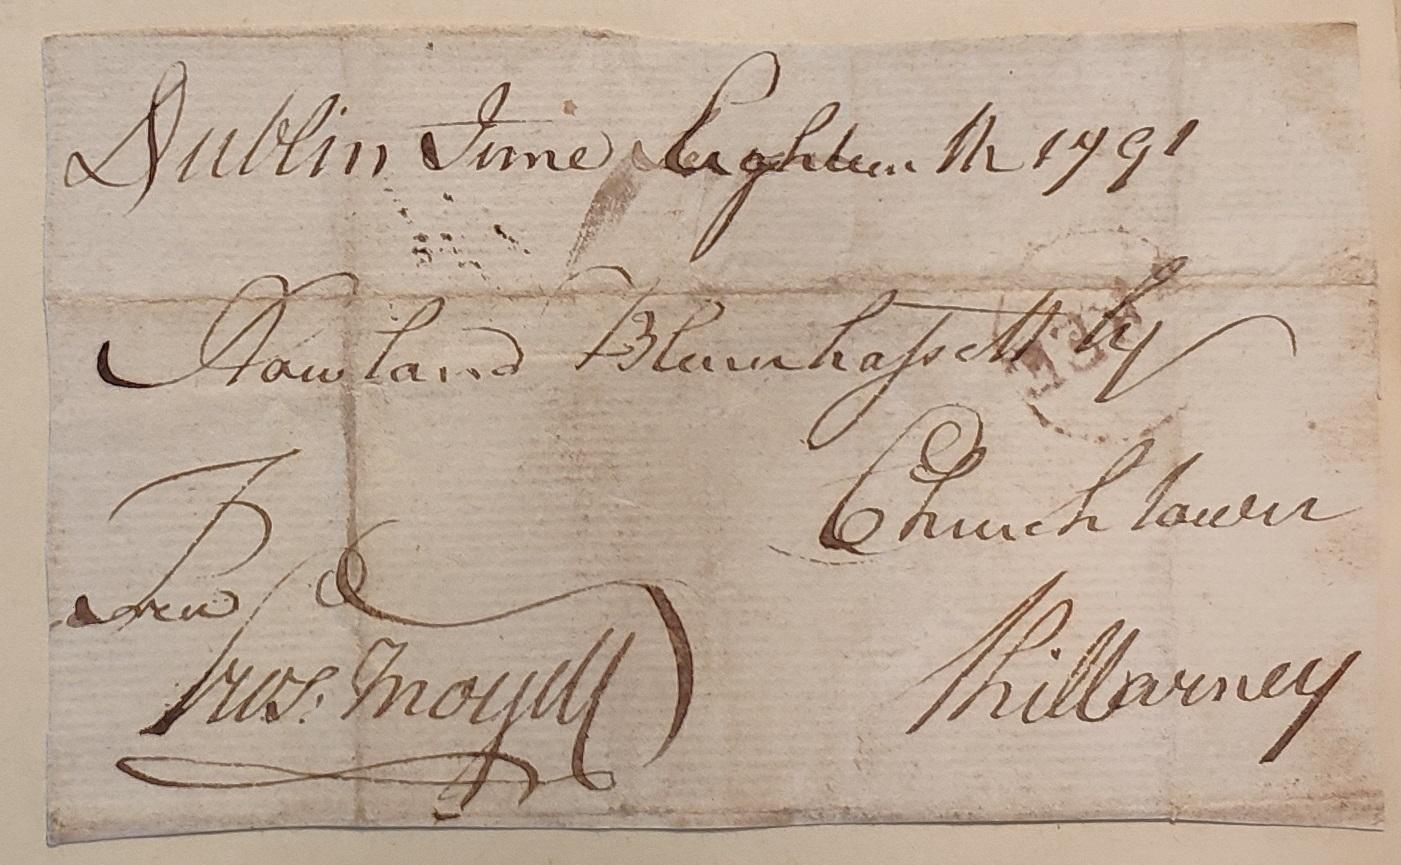 Dublin June Eighteenth 1791
Rowland Blennhassett Esq
Churchtown
Free
Killarney
Thos. Moyell